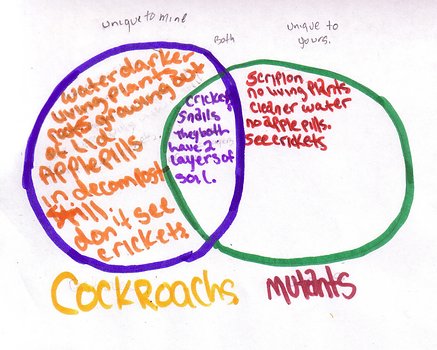 unique to mine
Both
unique to yours.
water darker
living plants
peaks growing out
of lid
Apple pills
in decompost
still.
don't see
crickets
crickets
snails
they both
have 2
layers of
soil.
scriplon
no living plants
cleaner water
no apple pills.
see crickets
Cockroachs
mutants